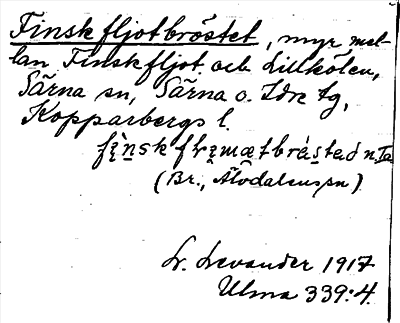 Finskfljotbröstet, myr mel-
lan Finskfljot och Lillkölen,
Särna sn, Särna o. Idre tg,
Kopparbergs l.
n.
(Br., Älvdalens sn)
L. Levander 1917
Ulma 339:4.